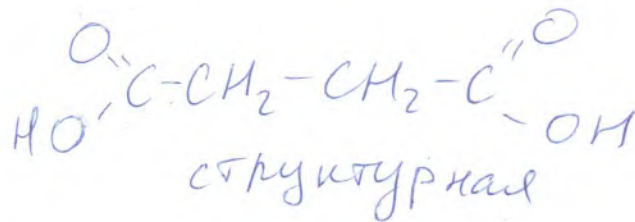 O O
C-CH₂-CH₂-C
HO OH
структурная